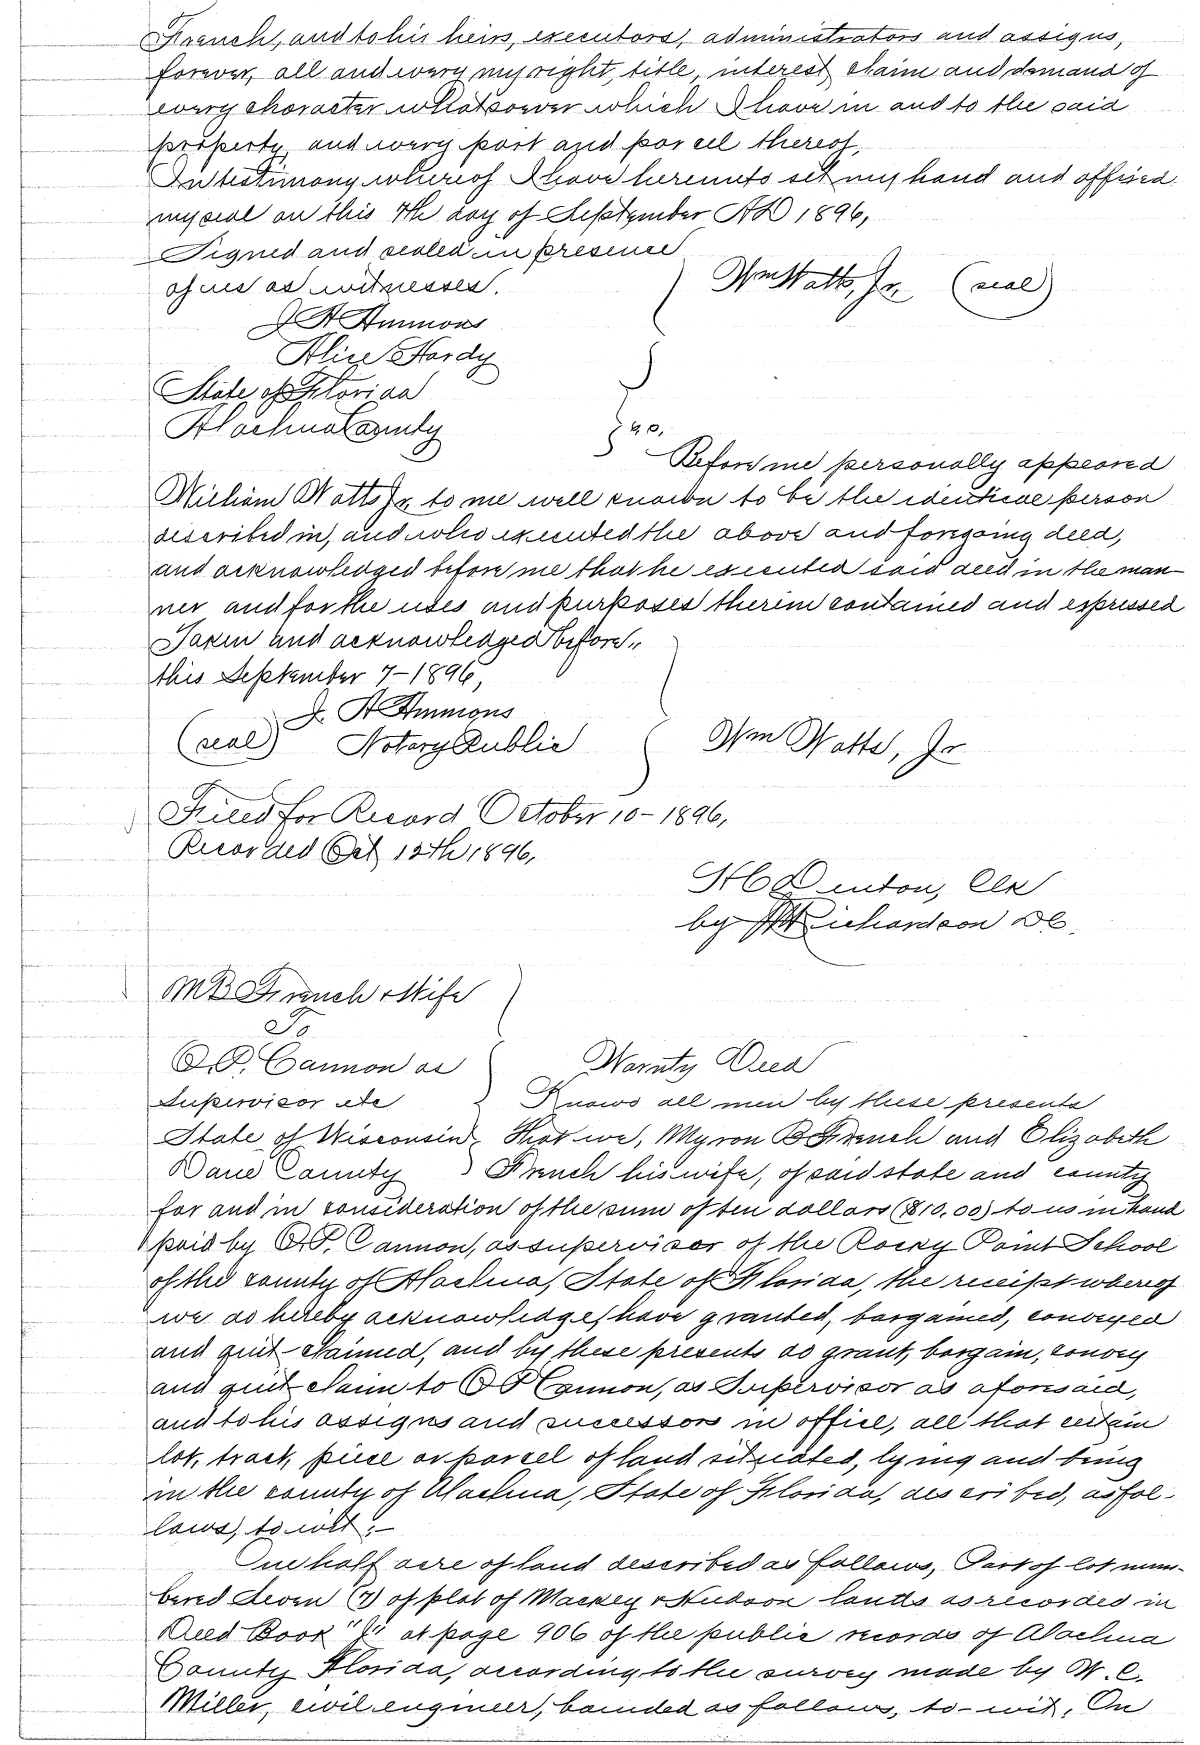 French, and to his heirs, executors, administrators and assigns,
forever, all and every my right, title, interest, claim and demand of
every character whatsoever which I have in and to the said
property, and every part and parcel thereof,
In testimony whereof I have hereunto set my hand and affixed
my seal on this 7th day of September AD 1896,
Signed and sealed in presence
of us as witnesses.
Wm Watts, Jr. (seal)
J A Ammons
Alice Hardy
State of Florida
Alachua County
Before me personally appeared
William Watts Jr. to me well known to be the identical person
described in, and who executed the above and foregoing deed,
and acknowledged before me that he executed said deed in the man-
ner and for the uses and purposes therein contained and expressed
Taken and acknowledged before
this September 7-1896,
J. A Ammons
(seal) Notary Public Wm Watts, Jr
Filed for Record October 10-1896,
Recorded Oct 12th 1896,
H C Denton, Clk
by Richardson DC.
M B French & Wife
To
O. P. Cannon as Warnty Deed
Supervisor etc Know all men by these presents
State of Wisconsin, That we, Myron B French and Elizabeth
Dane County French his wife, of said state and county
for and in consideration of the sum of ten dollars ($10,00) to us in hand
paid by O. P. Cannon, as supervisor of the Rocky Point School
of the county of Alachua, State of Florida, the receipt whereof
we do hereby acknowledge, have granted, bargained, conveyed
and quit-claimed, and by these presents do grant, bargain, convey
and quit claim to O P Cannon, as Supervisor as aforesaid,
and to his assigns and successors in office, all that certain
lot, tract, piece or parcel of land situated, lying and being
in the county of Alachua, State of Florida, described, as fol-
lows, to wit:-
One half acre of land described as follows, Part of lot num-
bered seven (7) of plat of Mackey & Hudson lands as recorded in
Deed Book at page 906 of the public records of Alachua
County Florida, according to the survey made by W. C.
Miller, civil engineer, bounded as follows, to-wit, On